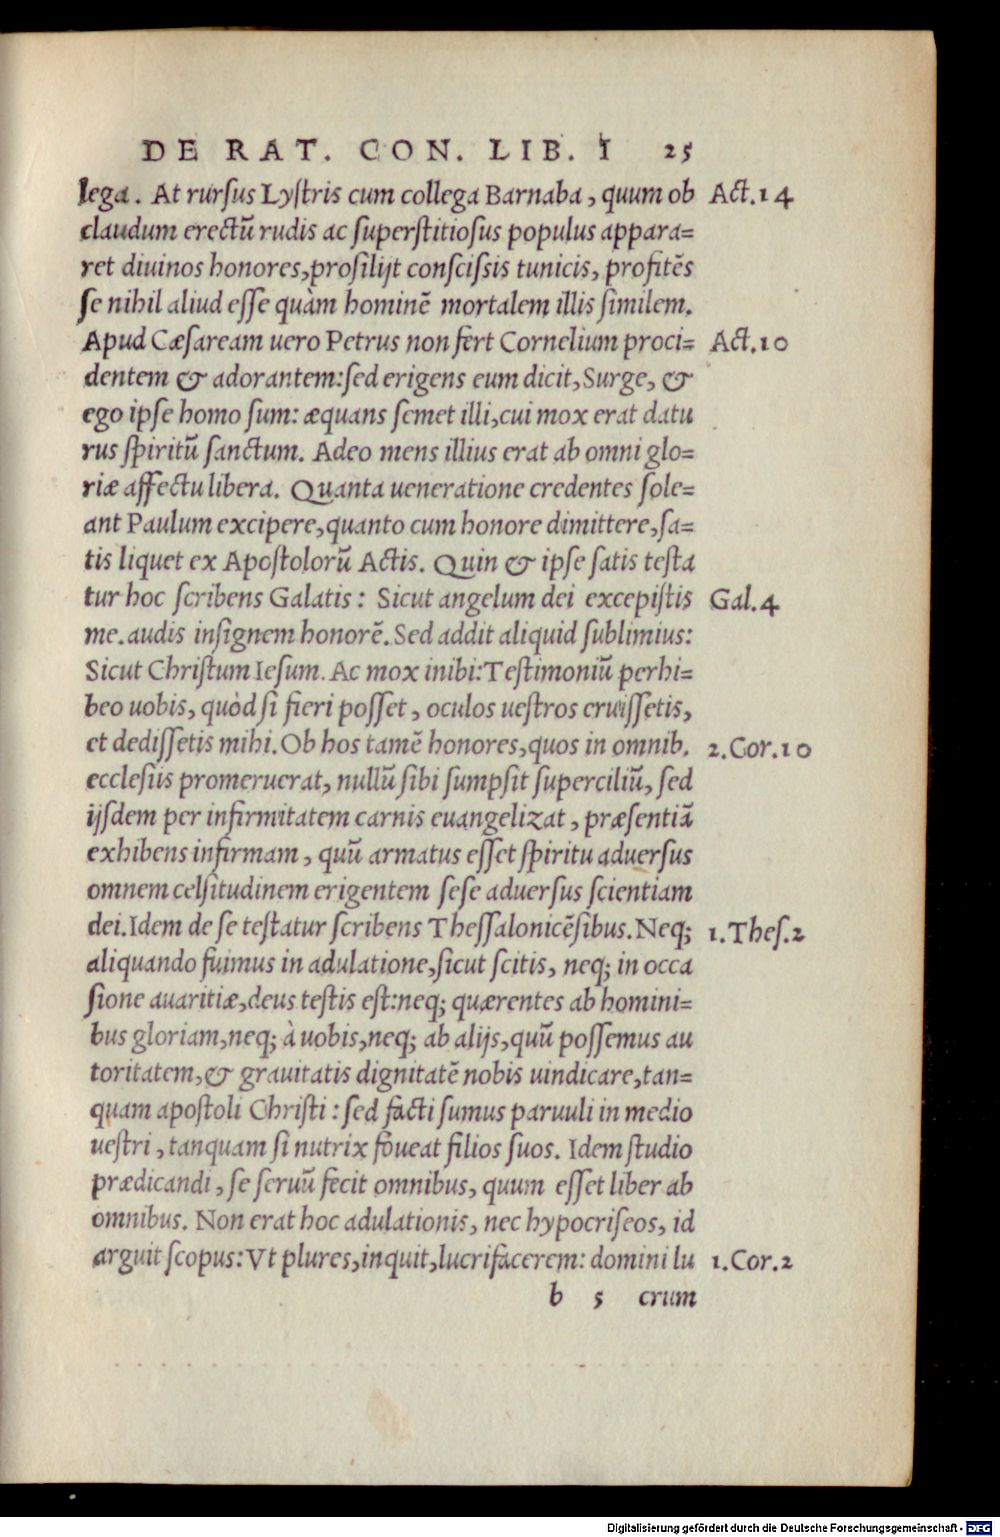 DE RAT. CON. LIB. I 25
lega. At rursus Lystris cum collega Barnaba, quum ob Act.14
claudum erectū rudis ac superstitiosus populus appara=
ret diuinos honores,prosilijt conscissis tunicis, profitēs
se nihil aliud esse quàm hominē mortalem illis similem.
Apud Cæsaream uero Petrus non fert Cornelium proci= Act.10
dentem & adorantem:sed erigens eum dicit,Surge, &
ego ipse homo sum: æquans semet illi,cui mox erat datu
rus spiritū sanctum. Adeo mens illius erat ab omni glo=
riæ affectu libera. Quanta ueneratione credentes sole=
ant Paulum excipere,quanto cum honore dimittere,sa=
tis liquet ex Apostolorū Actis. Quin & ipse satis testa
tur hoc scribens Galatis: Sicut angelum dei excepistis Gal.4
me.audis insignem honorē.Sed addit aliquid sublimius:
Sicut Christum Iesum. Ac mox inibi:Testimoniū perhi=
beo uobis, quòd si fieri posset, oculos uestros eruissetis,
et dedissetis mihi.Ob hos tamē honores,quos in omnib. 2.Cor.10
ecclesiis promeruerat, nullū sibi sumpsit superciliū, sed
ijsdem per infirmitatem carnis euangelizat, præsentiā
exhibens infirmam, quū armatus esset spiritu aduersus
omnem celsitudinem erigentem sese aduersus scientiam
dei.Idem de se testatur scribens Thessalonicēsibus.Neq; 1.Thes.2
aliquando fuimus in adulatione,sicut scitis, neq; in occa
sione auaritiæ,deus testis est:neq; quærentes ab homini=
bus gloriam,neq; à uobis,neq; ab alijs,quū possemus au
toritatem,& grauitatis dignitatē nobis uindicare,tan=
quam apostoli Christi: sed facti sumus paruuli in medio
uestri, tanquam si nutrix foueat filios suos. Idem studio
prædicandi, se seruū fecit omnibus, quum esset liber ab
omnibus. Non erat hoc adulationis, nec hypocriseos, id
arguit scopus:Vt plures,inquit,lucrifacerem: domini lu 1.Cor.2
b 5 crum
Digitalisierung gefördert durch die Deutsche Forschungsgemeinschaft - DFG